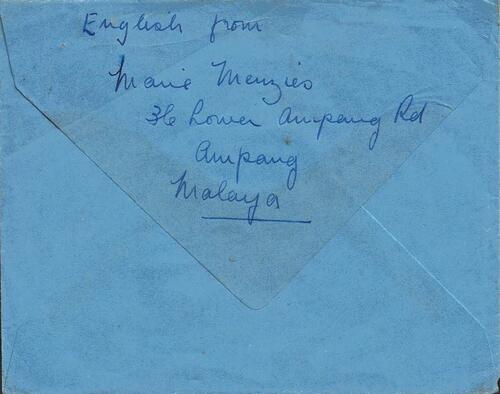 English from
Marie Menzies
36 Lower Ampang Rd
Ampang
Malaya